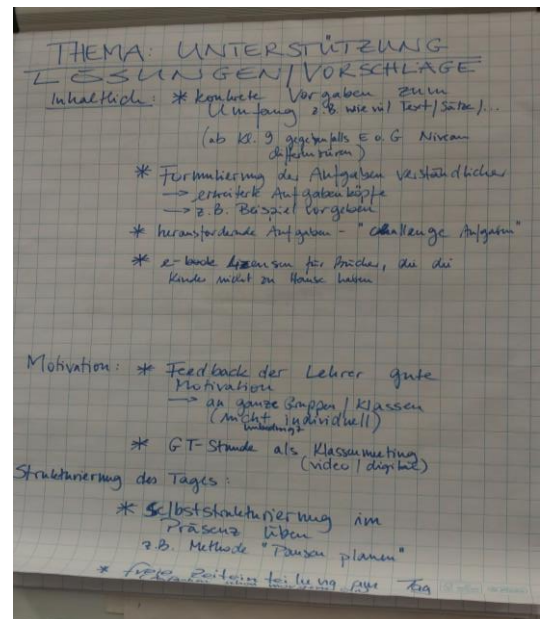 THEMA: UNTERSTÜTZUNG
LÖSUNGEN/VORSCHLÄGE
Inhaltlich: * konkrete Vorgaben zum
Umfang z.B. wie viel Text/Sätze/...
(ab Kl. 9 gegebenfalls E o. G Niveau
differenzieren)
* Formulierung der Aufgaben verständlicher
→ erweiterte Aufgabenköpfe
→ z.B. Beispiel vorgeben
* herausfordernde Aufgaben - "challenge Aufgaben"
* e-book Lizensen für Bücher, die die
Kinder nicht zu Hause haben
Motivation: * Feedback der Lehrer gute
Motivation
→ an ganze Gruppen / Klassen
(nicht individuell)
unbedingt
* GT-Stunde als Klassenmeeting
(video / digital)
Strukturierung des Tages:
* Selbststrukturierung im
Präsenz üben
z.B. Methode "Pausen planen"
* freie Zeiteinteilung am Tag